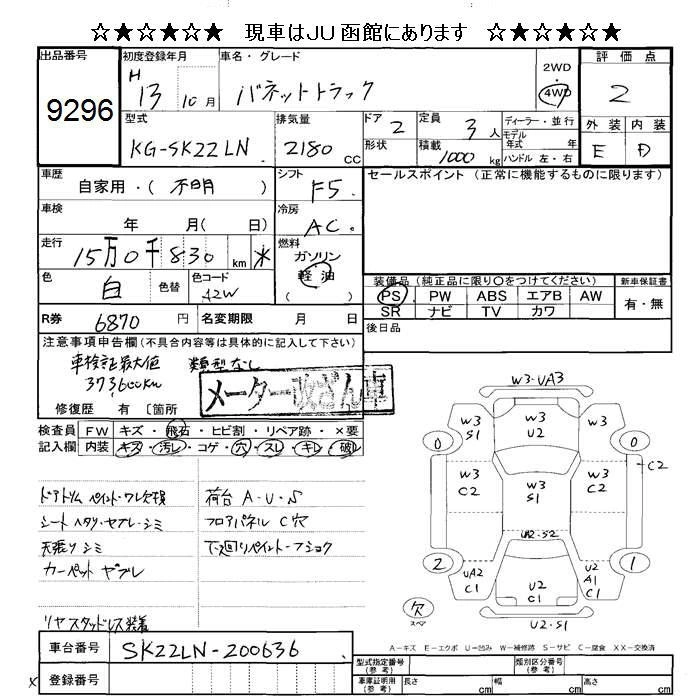 ☆★☆★☆★ 現車はJU函館にあります ☆★☆★☆★
出品番号 9296
初度登録年月 H 13 10月
車名・グレード バネットトラック
2WD 4WD
評価点 2
外装 E 内装 D
型式 KG-SK22LN
排気量 2180 CC
ドア 2
形状
定員 3 人
積載 1000 kg
ディーラー・並行
モデル年式 年
ハンドル 左・右
車歴 自家用・(不明)
シフト F5
セールスポイント(正常に機能するものに限ります)
車検 年 月( 日)
冷房 AC
走行 15万0千830 km ✳
燃料 ガソリン 軽油 ( )
色 白 色替
色コード A2W
装備品(純正品に限り○をつけてください)
PS PW ABS エアB AW
SR ナビ TV カワ
新車保証書 有・無
R券 6870 円
名変期限 月 日
後日品
注意事項申告欄(不具合内容等は具体的に記入して下さい)
車検証最大値 類型なし
373600km
メーター改ざん車
修復歴 有 〔箇所
検査員記入欄
FW キズ・飛石・ヒビ割・リペア跡・×要
内装 キズ・汚レ・コゲ・穴・スレ・キレ・破レ
ドアトリム ペイント・ワレ欠損
シート ヘタリ・ヤブレ・シミ
天張り シミ
カーペット ヤブレ
リヤ スタッドレス装着
荷台 A・U・S
フロアパネル C穴
下廻リペイント・フショク
W3・UA3
W3 S1
W3 U2
W3
0
0
C2
W3 C2
W3 S1
W3 C2
UA2・S2
2
UA2 C1
U2 C1
U2 A1 C1
1
欠 スペア
U2・S1
A-キズ E-エクボ U-凹み W-補修跡 S-サビ C-腐食 XX-交換済
車台番号 SK22LN-200636
X 登録番号
型式指定番号(参考)
類別区分番号(参考)
車庫証明用(参考) 長さ cm 幅 cm 高さ cm